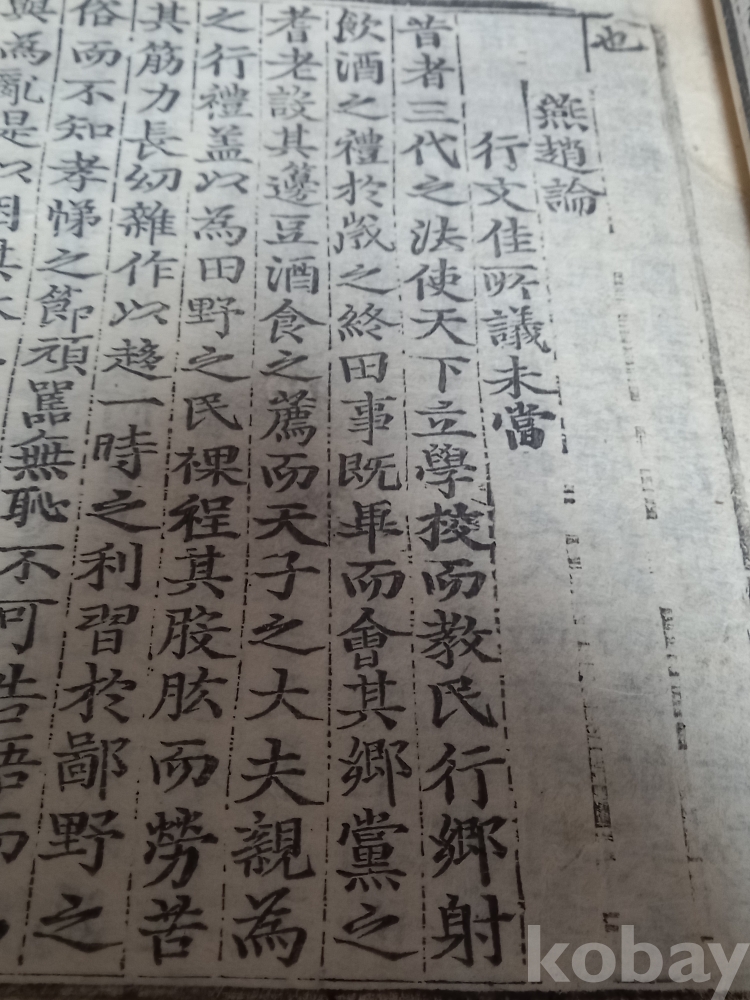 也
燕趙論
行文佳所議未當
昔者三代之法使天下立學校而教民行鄉射
飲酒之禮於歲之終田事既畢而會其鄉黨之
耆老設其籩豆酒食之薦而天子之大夫親為
之行禮盖以為田野之民裸裎其股肱而勞苦
其筋力長幼雜作以趨一時之利習於鄙野之
俗而不知孝悌之節頑嚚無恥不可告語而
與為亂是以因其
kobay